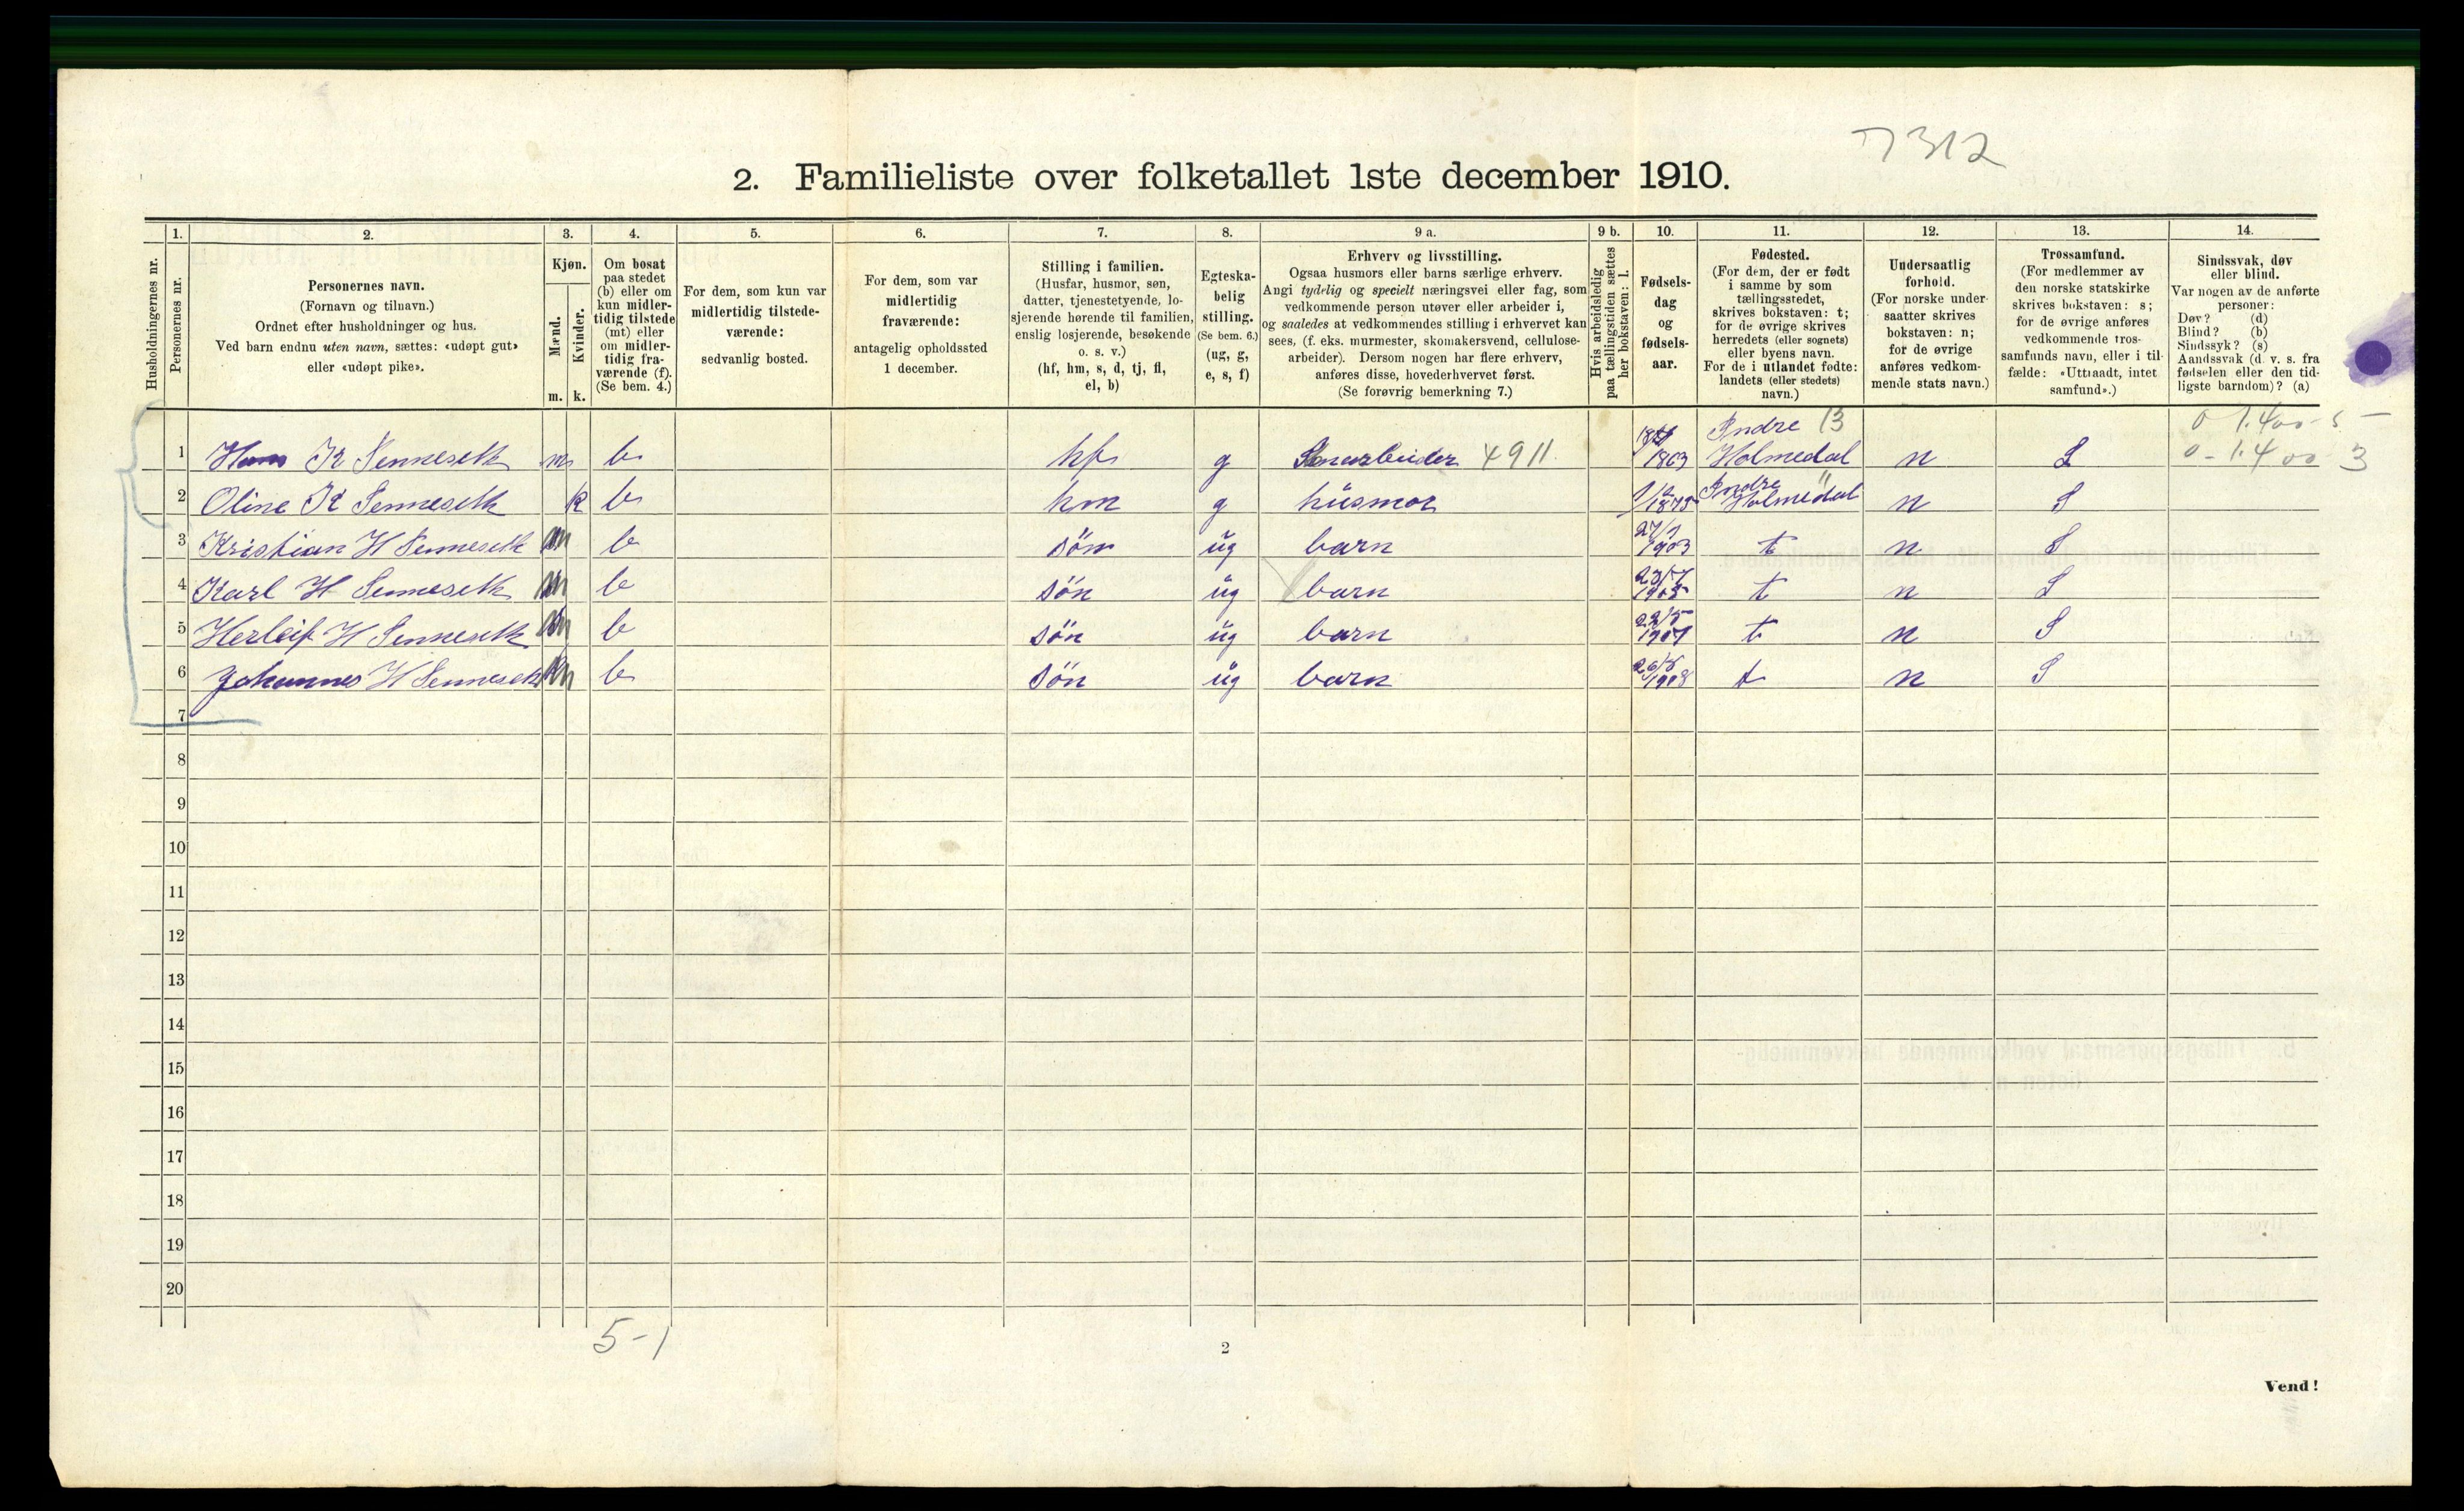 7312
2. Familieliste over folketallet 1ste december 1910.
Husholdningernes nr.
1. Personernes nr.
2. Personernes navn.
(Fornavn og tilnavn.)
Ordnet efter husholdninger og hus.
Ved barn endnu uten navn, sættes: «udøpt gut»
eller «udøpt pike».
3. Kjøn.
Mænd. m.
Kvinder. k.
4. Om bosat
paa stedet
(b) eller om
kun midler-
tidig tilstede
(mt) eller
om midler-
tidig fra-
værende (f).
(Se bem. 4.)
5. For dem, som kun var
midlertidig tilstede-
værende:
sedvanlig bosted.
6. For dem, som var
midlertidig
fraværende:
antagelig opholdssted
1 december.
7. Stilling i familien.
(Husfar, husmor, søn,
datter, tjenestetyende, lo-
sjerende hørende til familien,
enslig losjerende, besøkende
o. s. v.)
(hf, hm, s, d, tj, fl,
el, b)
8. Egteska-
belig
stilling.
(Se bem. 6.)
(ug, g,
e, s, f)
9 a. Erhverv og livsstilling.
Ogsaa husmors eller barns særlige erhverv.
Angi tydelig og specielt næringsvei eller fag, som
vedkommende person utøver eller arbeider i,
og saaledes at vedkommendes stilling i erhvervet kan
sees, (f. eks. murmester, skomakersvend, cellulose-
arbeider). Dersom nogen har flere erhverv,
anføres disse, hovederhvervet først.
(Se forøvrig bemerkning 7.)
9 b. Hvis arbeidsledig
paa tællingstiden sættes
her bokstaven: l.
10. Fødsels-
dag
og
fødsels-
aar.
11. Fødested.
(For dem, der er født
i samme by som
tællingsstedet,
skrives bokstaven: t;
for de øvrige skrives
herredets (eller sognets)
eller byens navn.
For de i utlandet fødte:
landets (eller stedets)
navn.)
12. Undersaatlig
forhold.
(For norske under-
saatter skrives
bokstaven: n;
for de øvrige
anføres vedkom-
mende stats navn.)
13. Trossamfund.
(For medlemmer av
den norske statskirke
skrives bokstaven: s;
for de øvrige anføres
vedkommende tros-
samfunds navn, eller i til-
fælde: «Uttraadt, intet
samfund».)
14. Sindssvak, døv
eller blind.
Var nogen av de anførte
personer:
Døv? (d)
Blind? (b)
Sindssyk? (s)
Aandssvak (d. v. s. fra
fødselen eller den tid-
ligste barndom)? (a)
Indre 13 0 1.400-5
1 Hans K Senneseth m b hf g 4911 1863 Holmedal n S 0-1.400 3
2 Oline K Senneseth k b hm g husmor 1/12 1873 Indre Holmedal n S
3 Kristian H Senneseth m b sön ug barn 27/1 1903 t n S
4 Karl H Senneseth m b sön ug barn 23/7 1905 t n S
5 Herleif H Senneseth m b sön ug barn 22/5 1907 t n S
6 Johannes H Senneseth m b sön ug barn 1908 t n S
7
8
9
10
11
12
13
14
15
16
17
18
19
20
5-1
2
Vend!